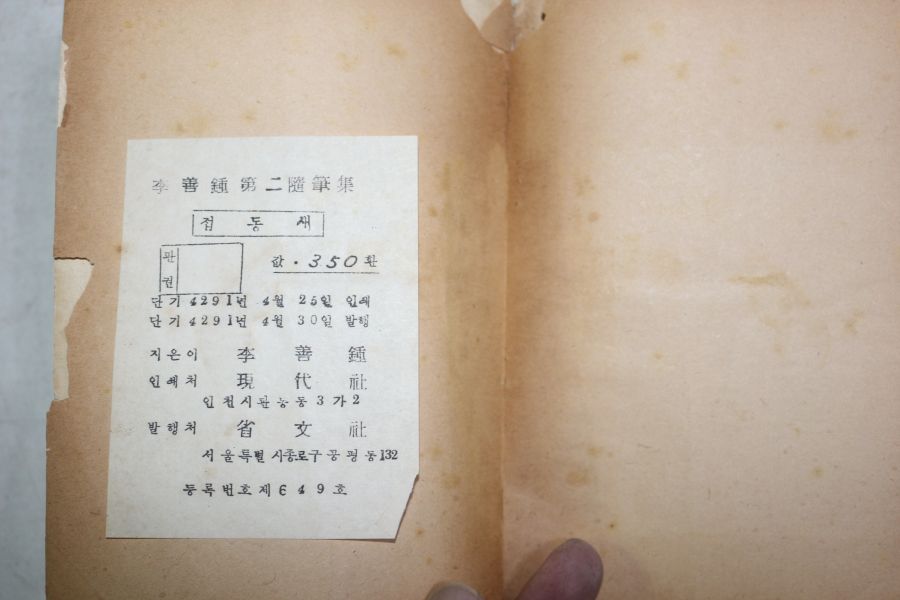 李善鍾第二隨筆集
접동새
판권
값 · 350환
단기 4291년 4월 25일 인쇄
단기 4291년 4월 30일 발행
지은이 李善鍾
인쇄처 現代社
인천시관능동3가2
발행처 省文社
서울특별시종로구공평동132
등록번호제649호